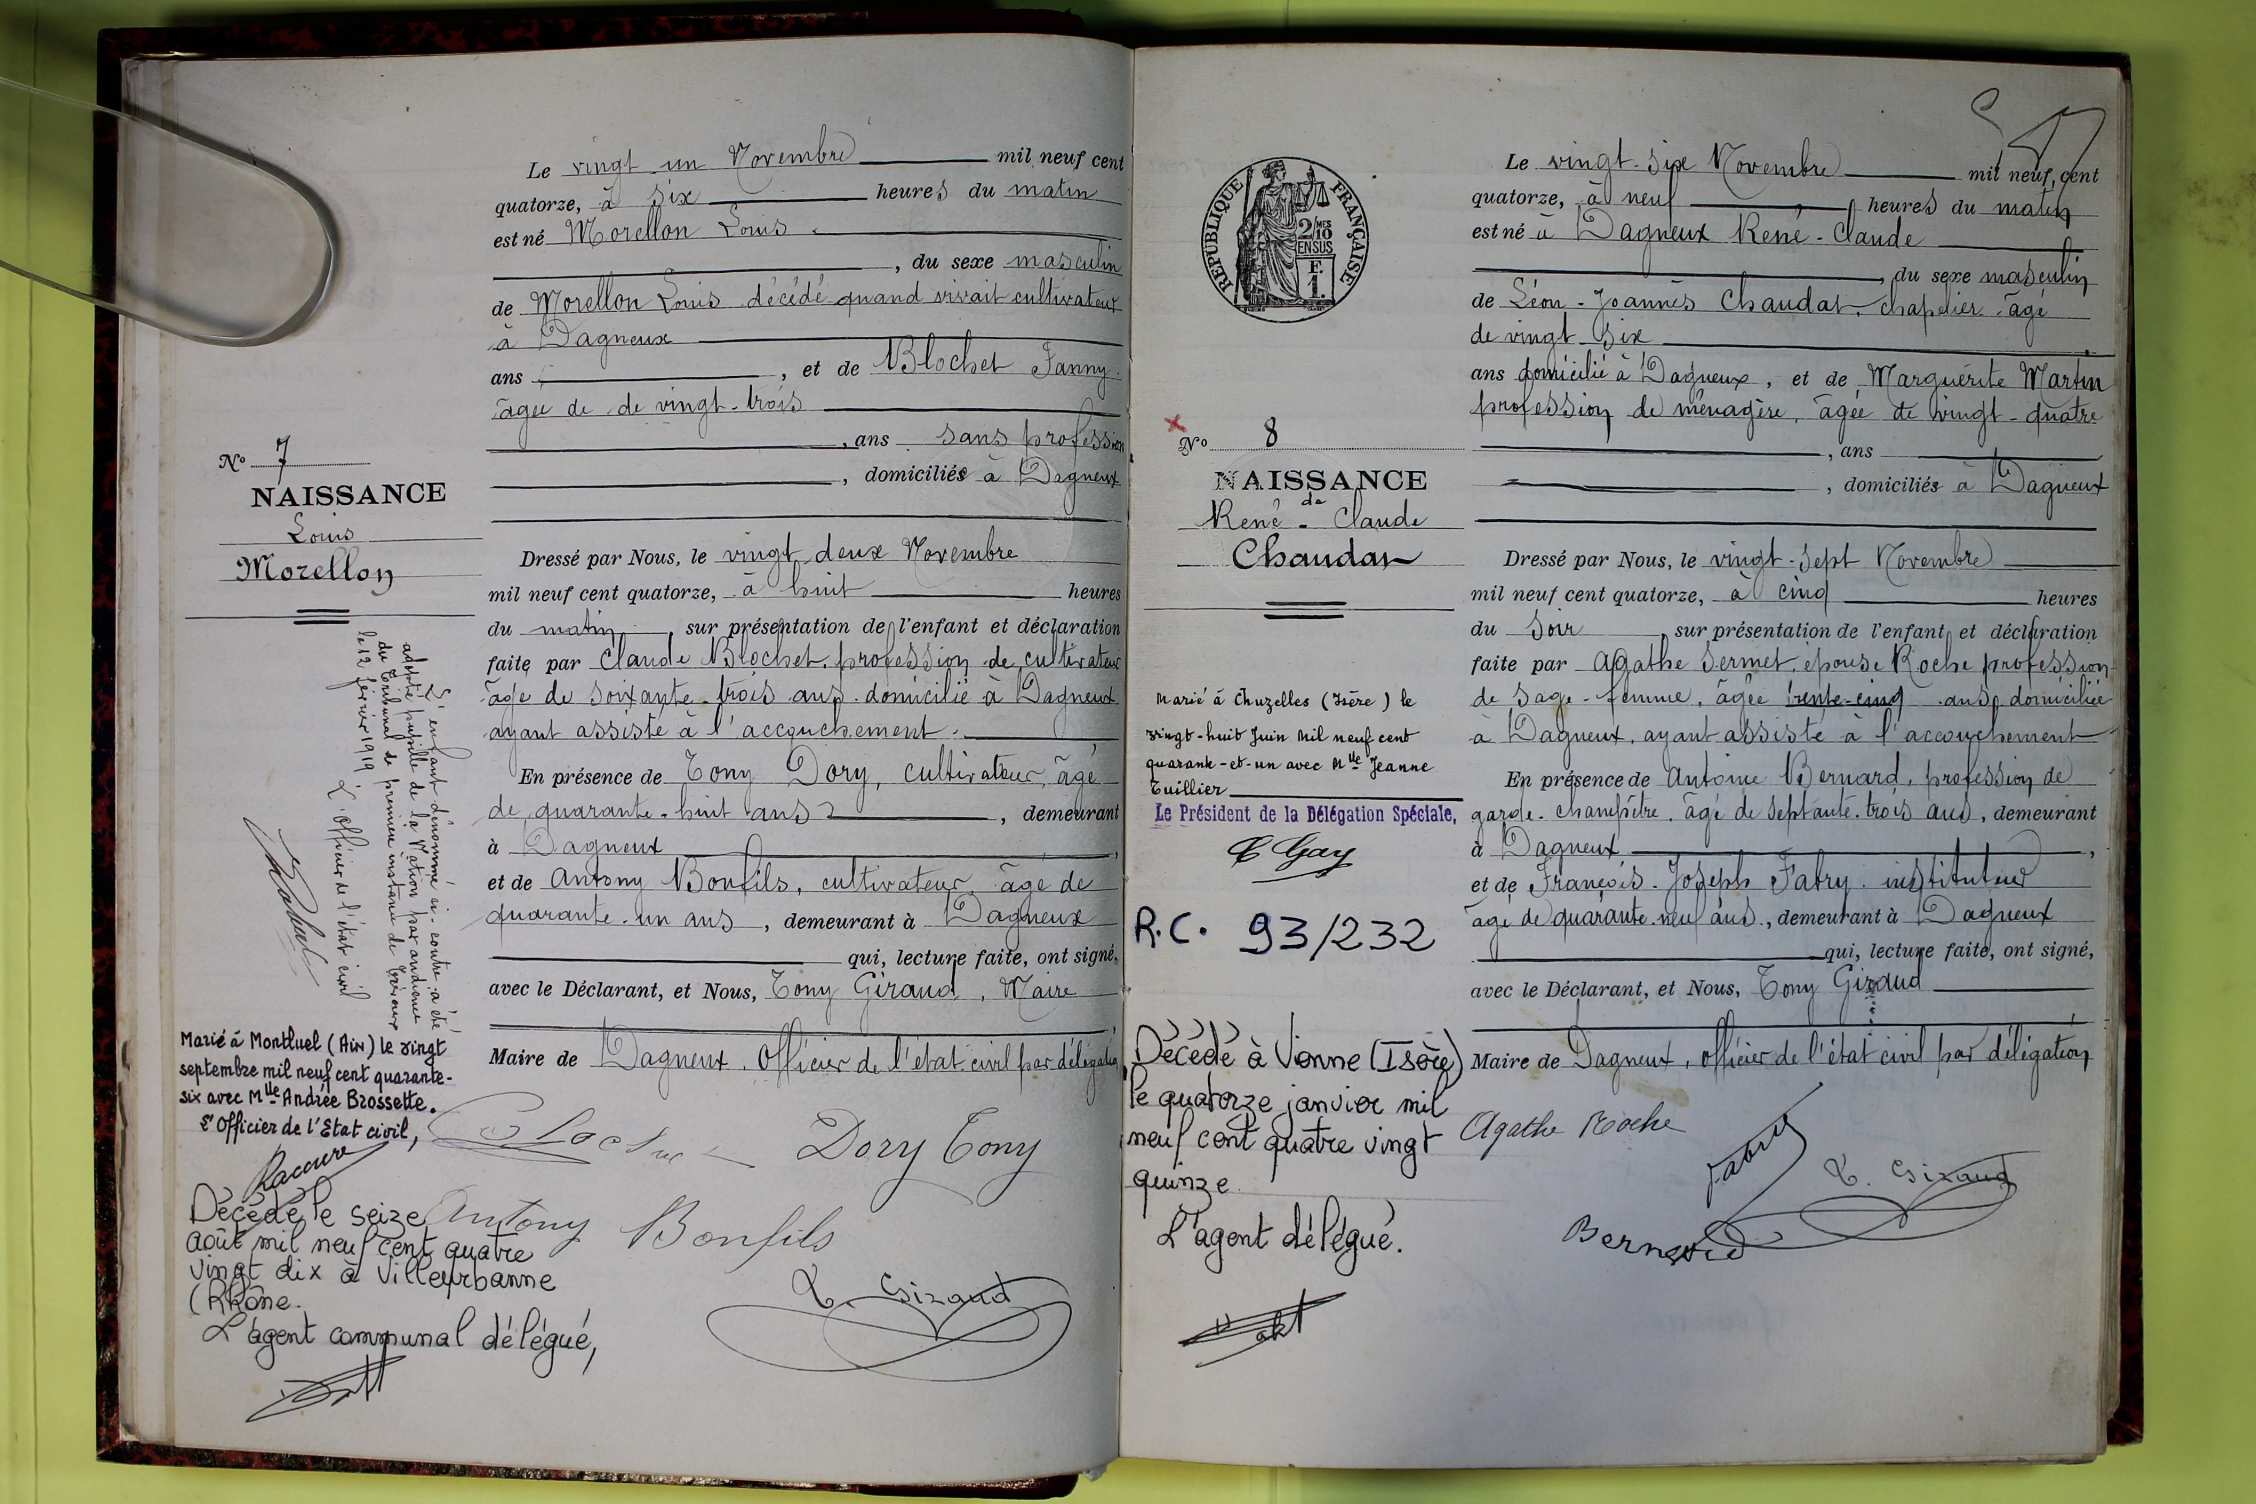 Le vingt un Novembre mil neuf cent
quatorze, à six heures du matin
est né Morellon Louis
, du sexe masculin
de Morellon Louis décédé quand vivait cultivateur
à Dagneux
ans , et de Blochet Fanny
âgée de de vingt-trois
, ans sans profession
, domiciliés à Dagneux
Dressé par Nous, le vingt deux Novembre
mil neuf cent quatorze, à huit heures
du matin, sur présentation de l'enfant et déclaration
faite par Claude Blochet, profession de cultivateur
âgé de soixante-trois ans domicilié à Dagneux
ayant assisté à l'accouchement.
En présence de Tony Dory, cultivateur, âgé
de quarante-huit ans , demeurant
à Dagneux ,
et de Antony Bonfils, cultivateur, âgé de
quarante-un ans , demeurant à Dagneux
qui, lecture faite, ont signé,
avec le Déclarant, et Nous, Tony Giraud, Maire
Maire de Dagneux, Officier de l'état civil par délégation
Dory Tony
Antony Bonfils
T. Giraud
No 7
NAISSANCE
Louis
Morellon
L'enfant dénommé ci-contre a été
adopté pupille de la Nation par audience
du Tribunal de première instance de Trévoux
le 12 février 1919
L'officier de l'état civil
Marié à Montluel (Ain) le vingt
septembre mil neuf cent quarante-
six avec Mlle Andrée Brossette.
L'Officier de l'Etat civil,
Décédé le seize
août mil neuf cent quatre
vingt dix à Villeurbanne
(Rhône.
L'agent communal délégué,
RÉPUBLIQUE FRANÇAISE
2/10
MES
EN SUS
F.
1.
Le vingt-six Novembre mil neuf cent
quatorze, à neuf heures du matin
est né à Dagneux René-Claude
, du sexe masculin
de Léon-Joannès Chaudat, chapelier, âgé
de vingt-six
ans domicilié à Dagneux, et de Marguerite Martin
profession de ménagère, âgée de vingt-quatre
, ans
, domiciliés à Dagneux
Dressé par Nous, le vingt-sept Novembre
mil neuf cent quatorze, à cinq heures
du soir, sur présentation de l'enfant et déclaration
faite par Agathe Sermet, épouse Roche profession
de sage-femme, âgée trente-cinq ans domiciliée
à Dagneux, ayant assisté à l'accouchement
En présence de Antoine Bernard, profession de
garde-champêtre, âgé de septante-trois ans, demeurant
à Dagneux ,
et de François-Joseph Fabry, instituteur
âgé de quarante-neuf ans, demeurant à Dagneux
qui, lecture faite, ont signé,
avec le Déclarant, et Nous, Tony Giraud
Maire de Dagneux, officier de l'état civil par délégation
Agathe Roche
Fabry
T. Giraud
Bernard
No 8
NAISSANCE
de
René-Claude
Chaudat
Marié à Chuzelles (Isère) le
vingt-huit Juin mil neuf cent
quarante-et-un avec Mlle Jeanne
Tuillier
Le Président de la Délégation Spéciale,
Gay
R.C. 93/232
Décédé à Vienne (Isère)
le quatorze janvier mil
neuf cent quatre vingt
quinze
L'agent délégué.